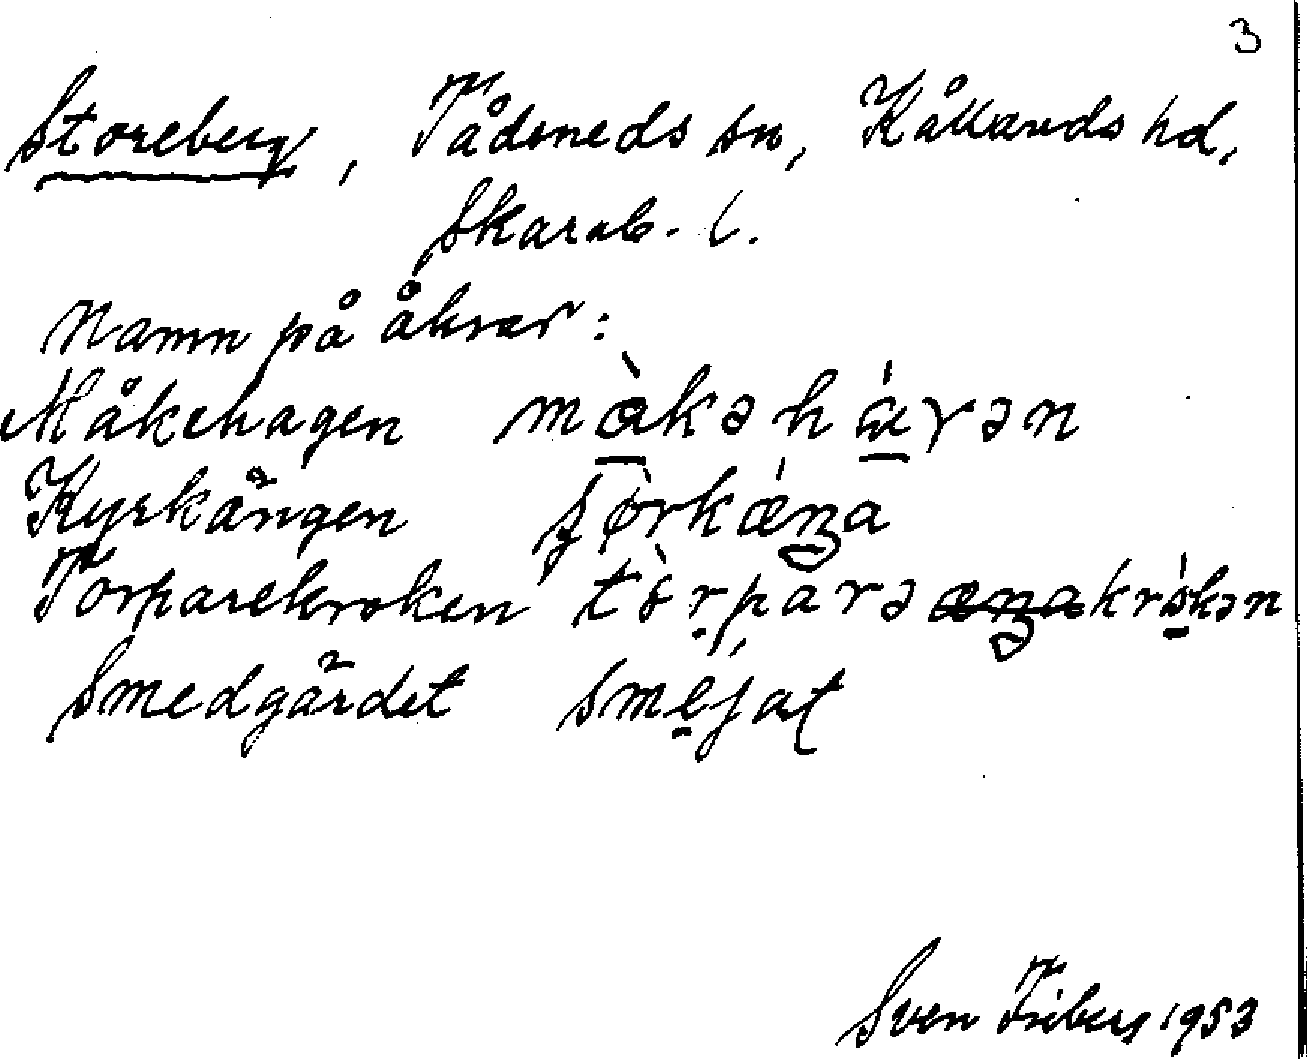 3
Storeberg, Tådeneds sn, Kållands hd,
Skarab. l.
Namn på åkrar:
Måkehagen måkəhàɣən
Kyrkängen ʂørkæŋa
Torparekroken tòrparəkrokən
Smedgärdet smejat
Sven Friberg 1953